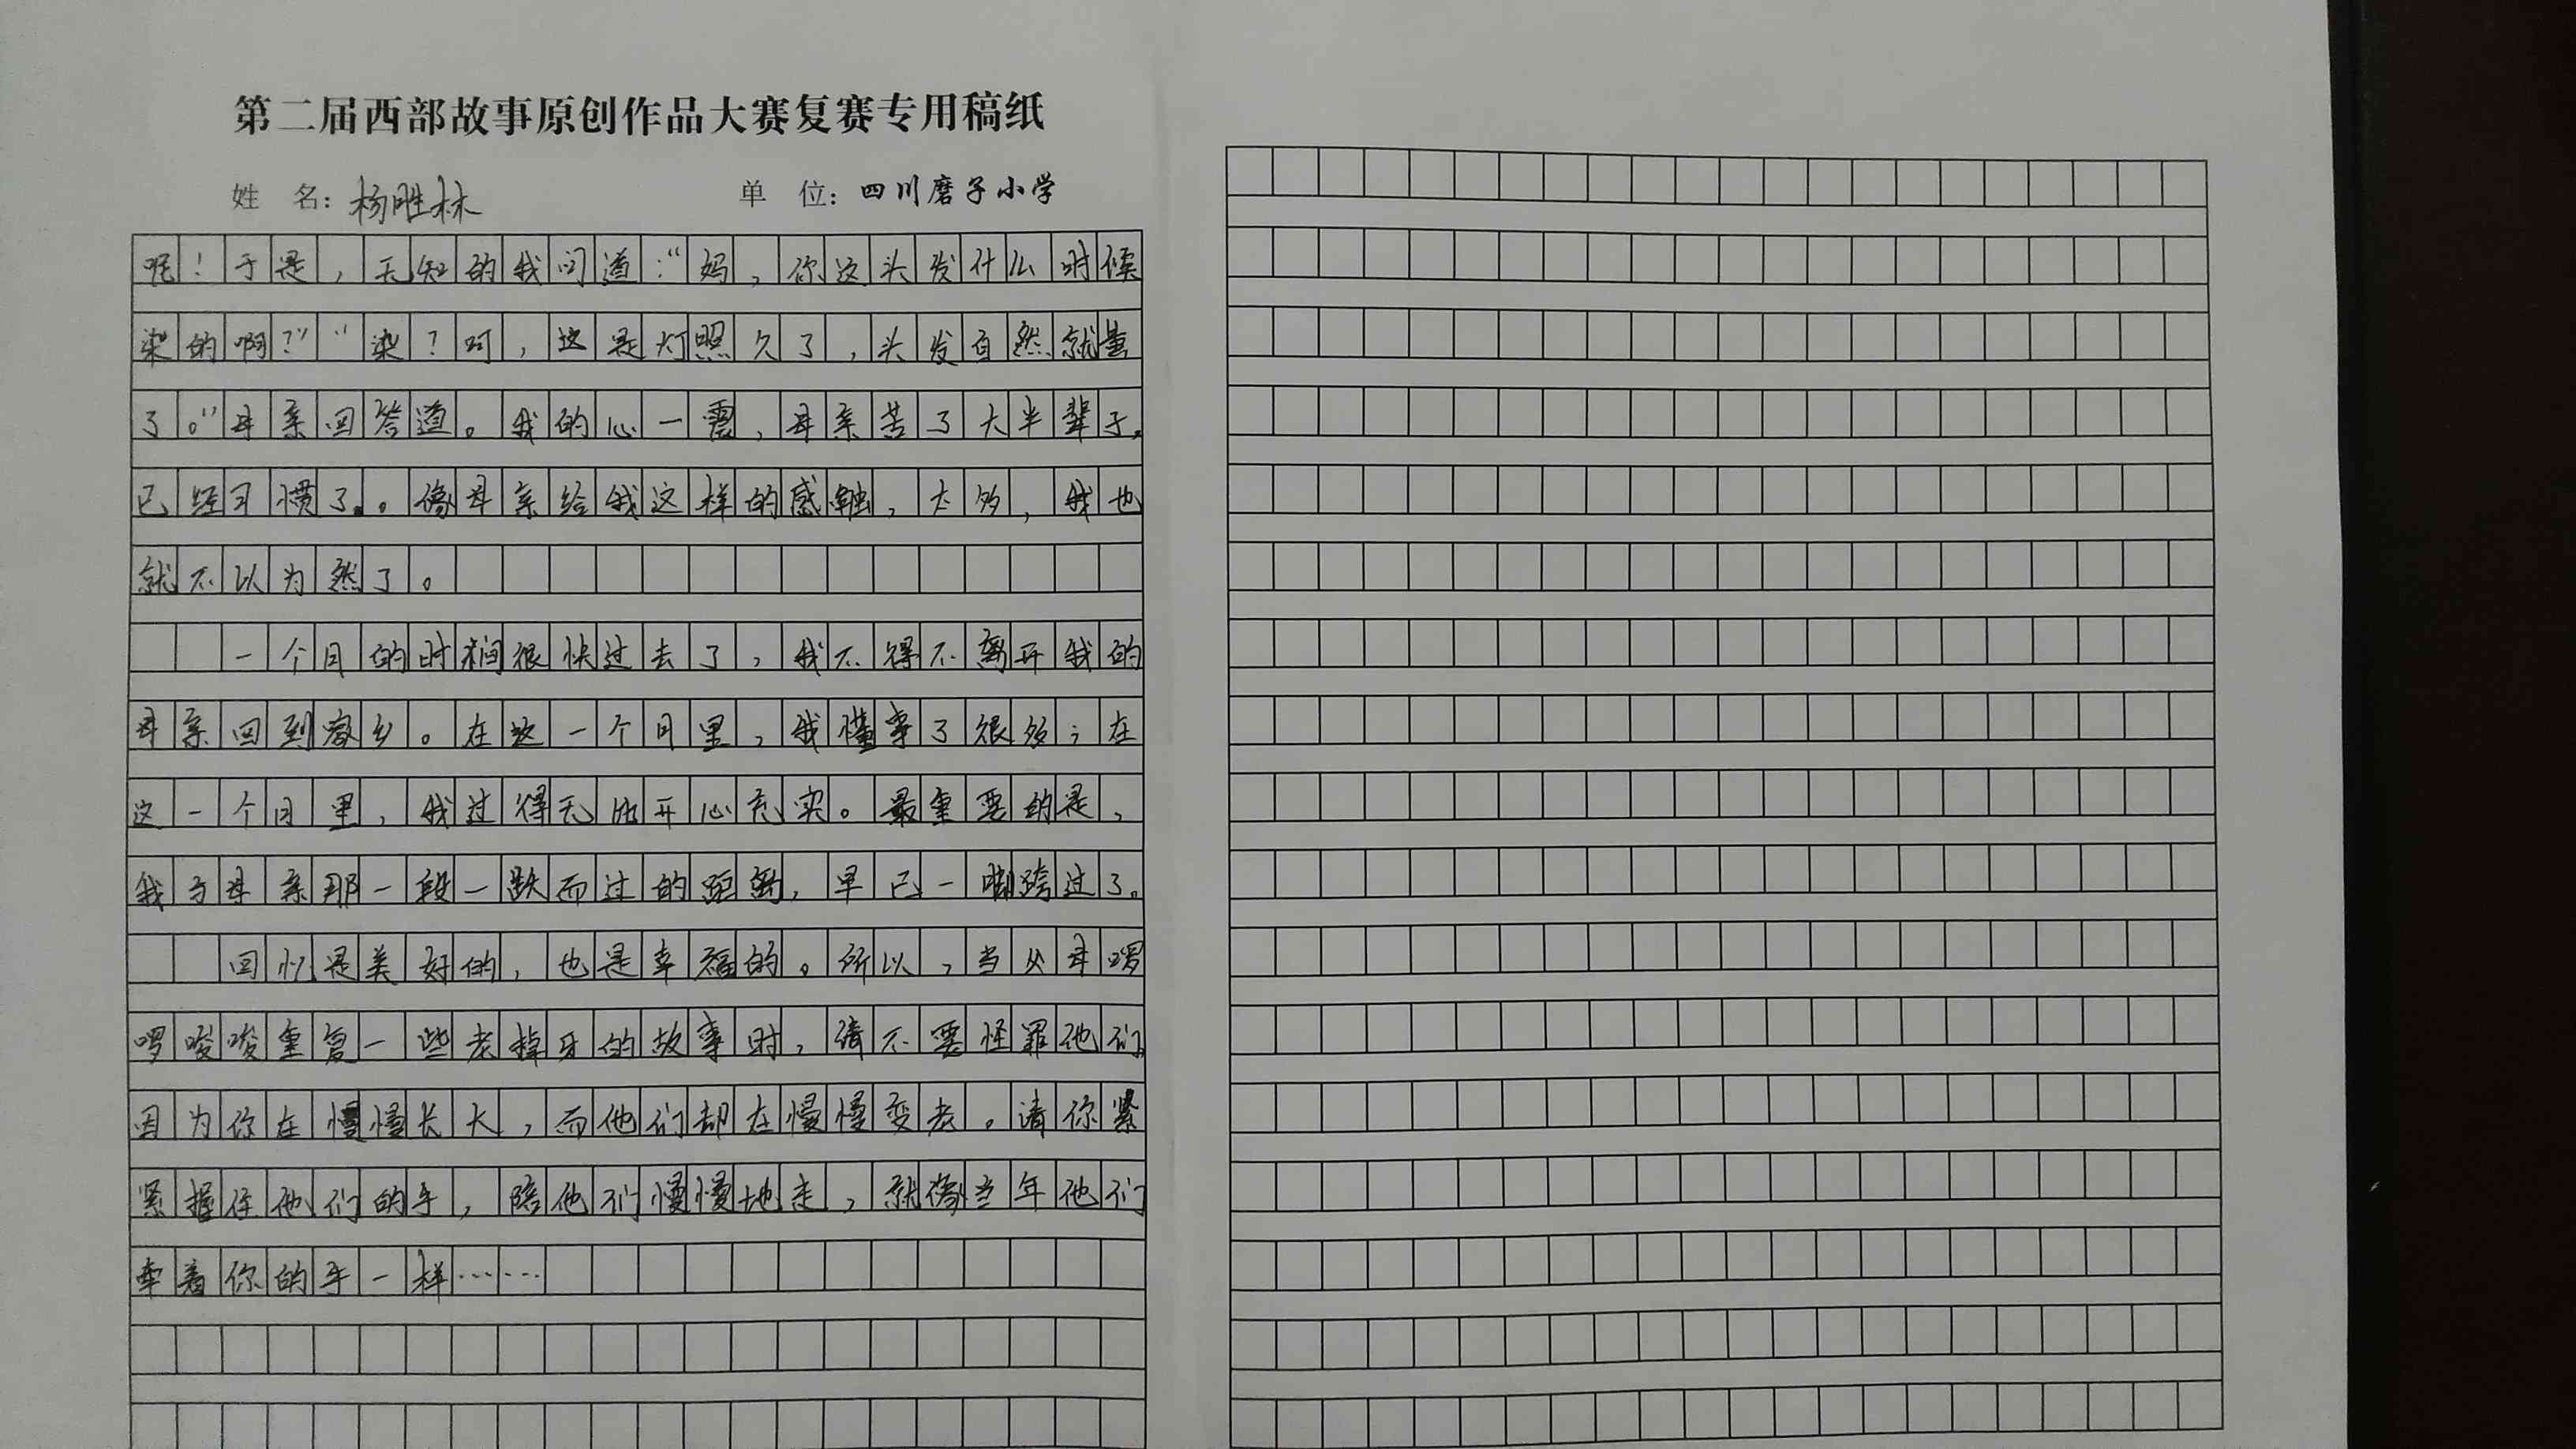 第二届西部故事原创作品大赛复赛专用稿纸
姓 名：杨胜林 单 位：四川磨子小学
呢！于是，无知的我问道：“妈，你这头发什么时候
染的啊？”“染？呵，这是灯照久了，头发自然就黄
了。”母亲回答道。我的心一震，母亲苦了大半辈子，
已经习惯了。像母亲给我这样的感触，太多，我也
就不以为然了。
一个月的时间很快过去了，我不得不离开我的
母亲回到家乡。在这一个月里，我懂事了很多；在
这一个月里，我过得无比开心充实。最重要的是，
我与母亲那一段一跃而过的距离，早已一脚跨过了。
回忆是美好的，也是幸福的。所以，当父母啰
啰唆唆重复一些老掉牙的故事时，请不要怪罪他们，
因为你在慢慢长大，而他们却在慢慢变老。请你紧
紧握住他们的手，陪他们慢慢地走，就像当年他们
牵着你的手一样……